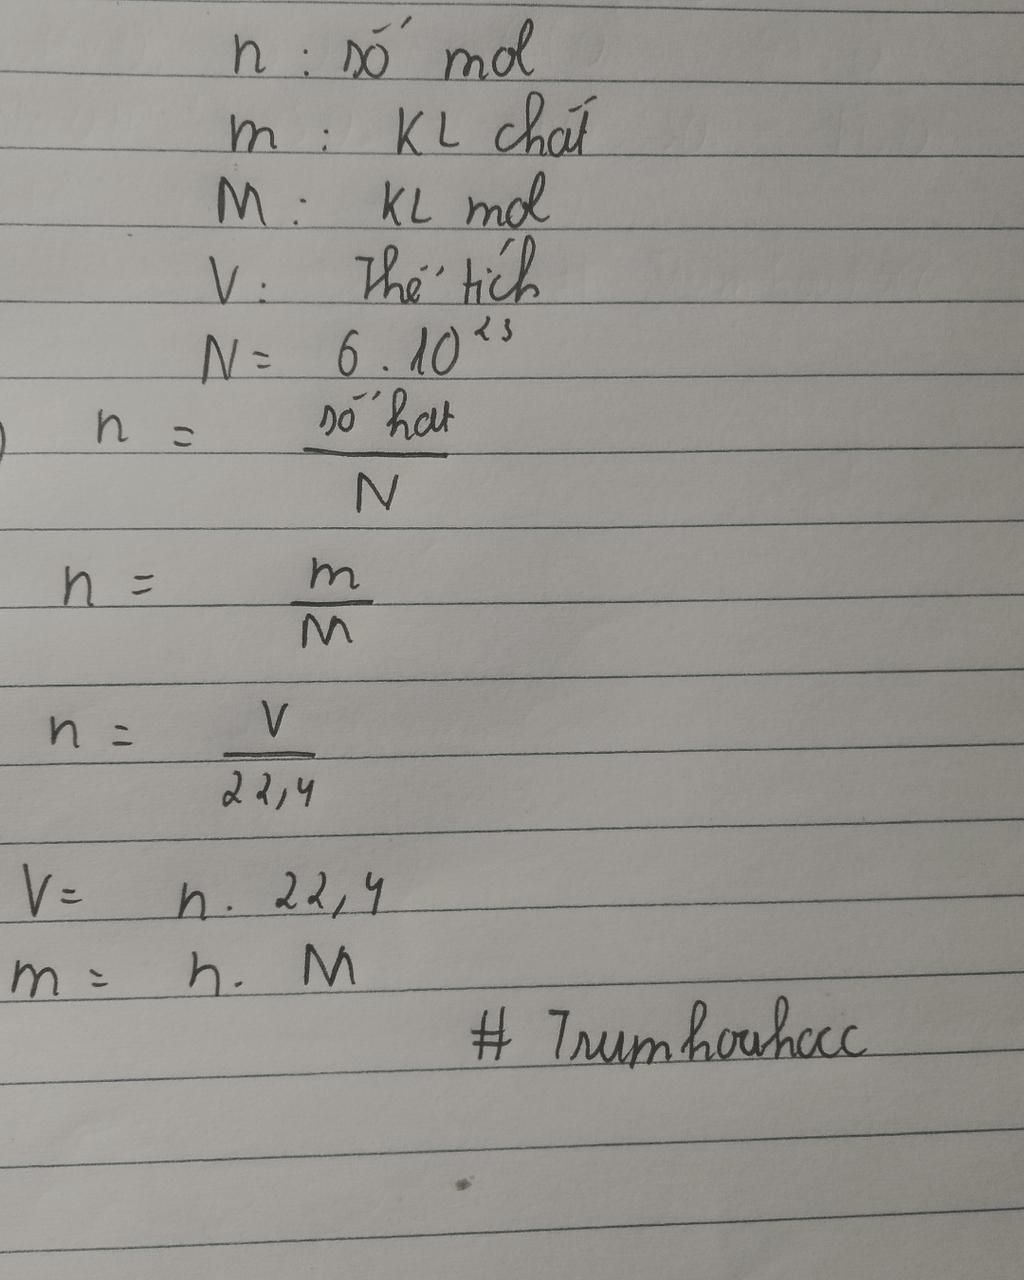 n : số mol
m : KL chất
M : KL mol
V : Thể tích
N = 6 . 10²³
n = số hạt / N
n = m / M
n = V / 22,4
V = n . 22,4
m = n . M
# Trumhoahocc